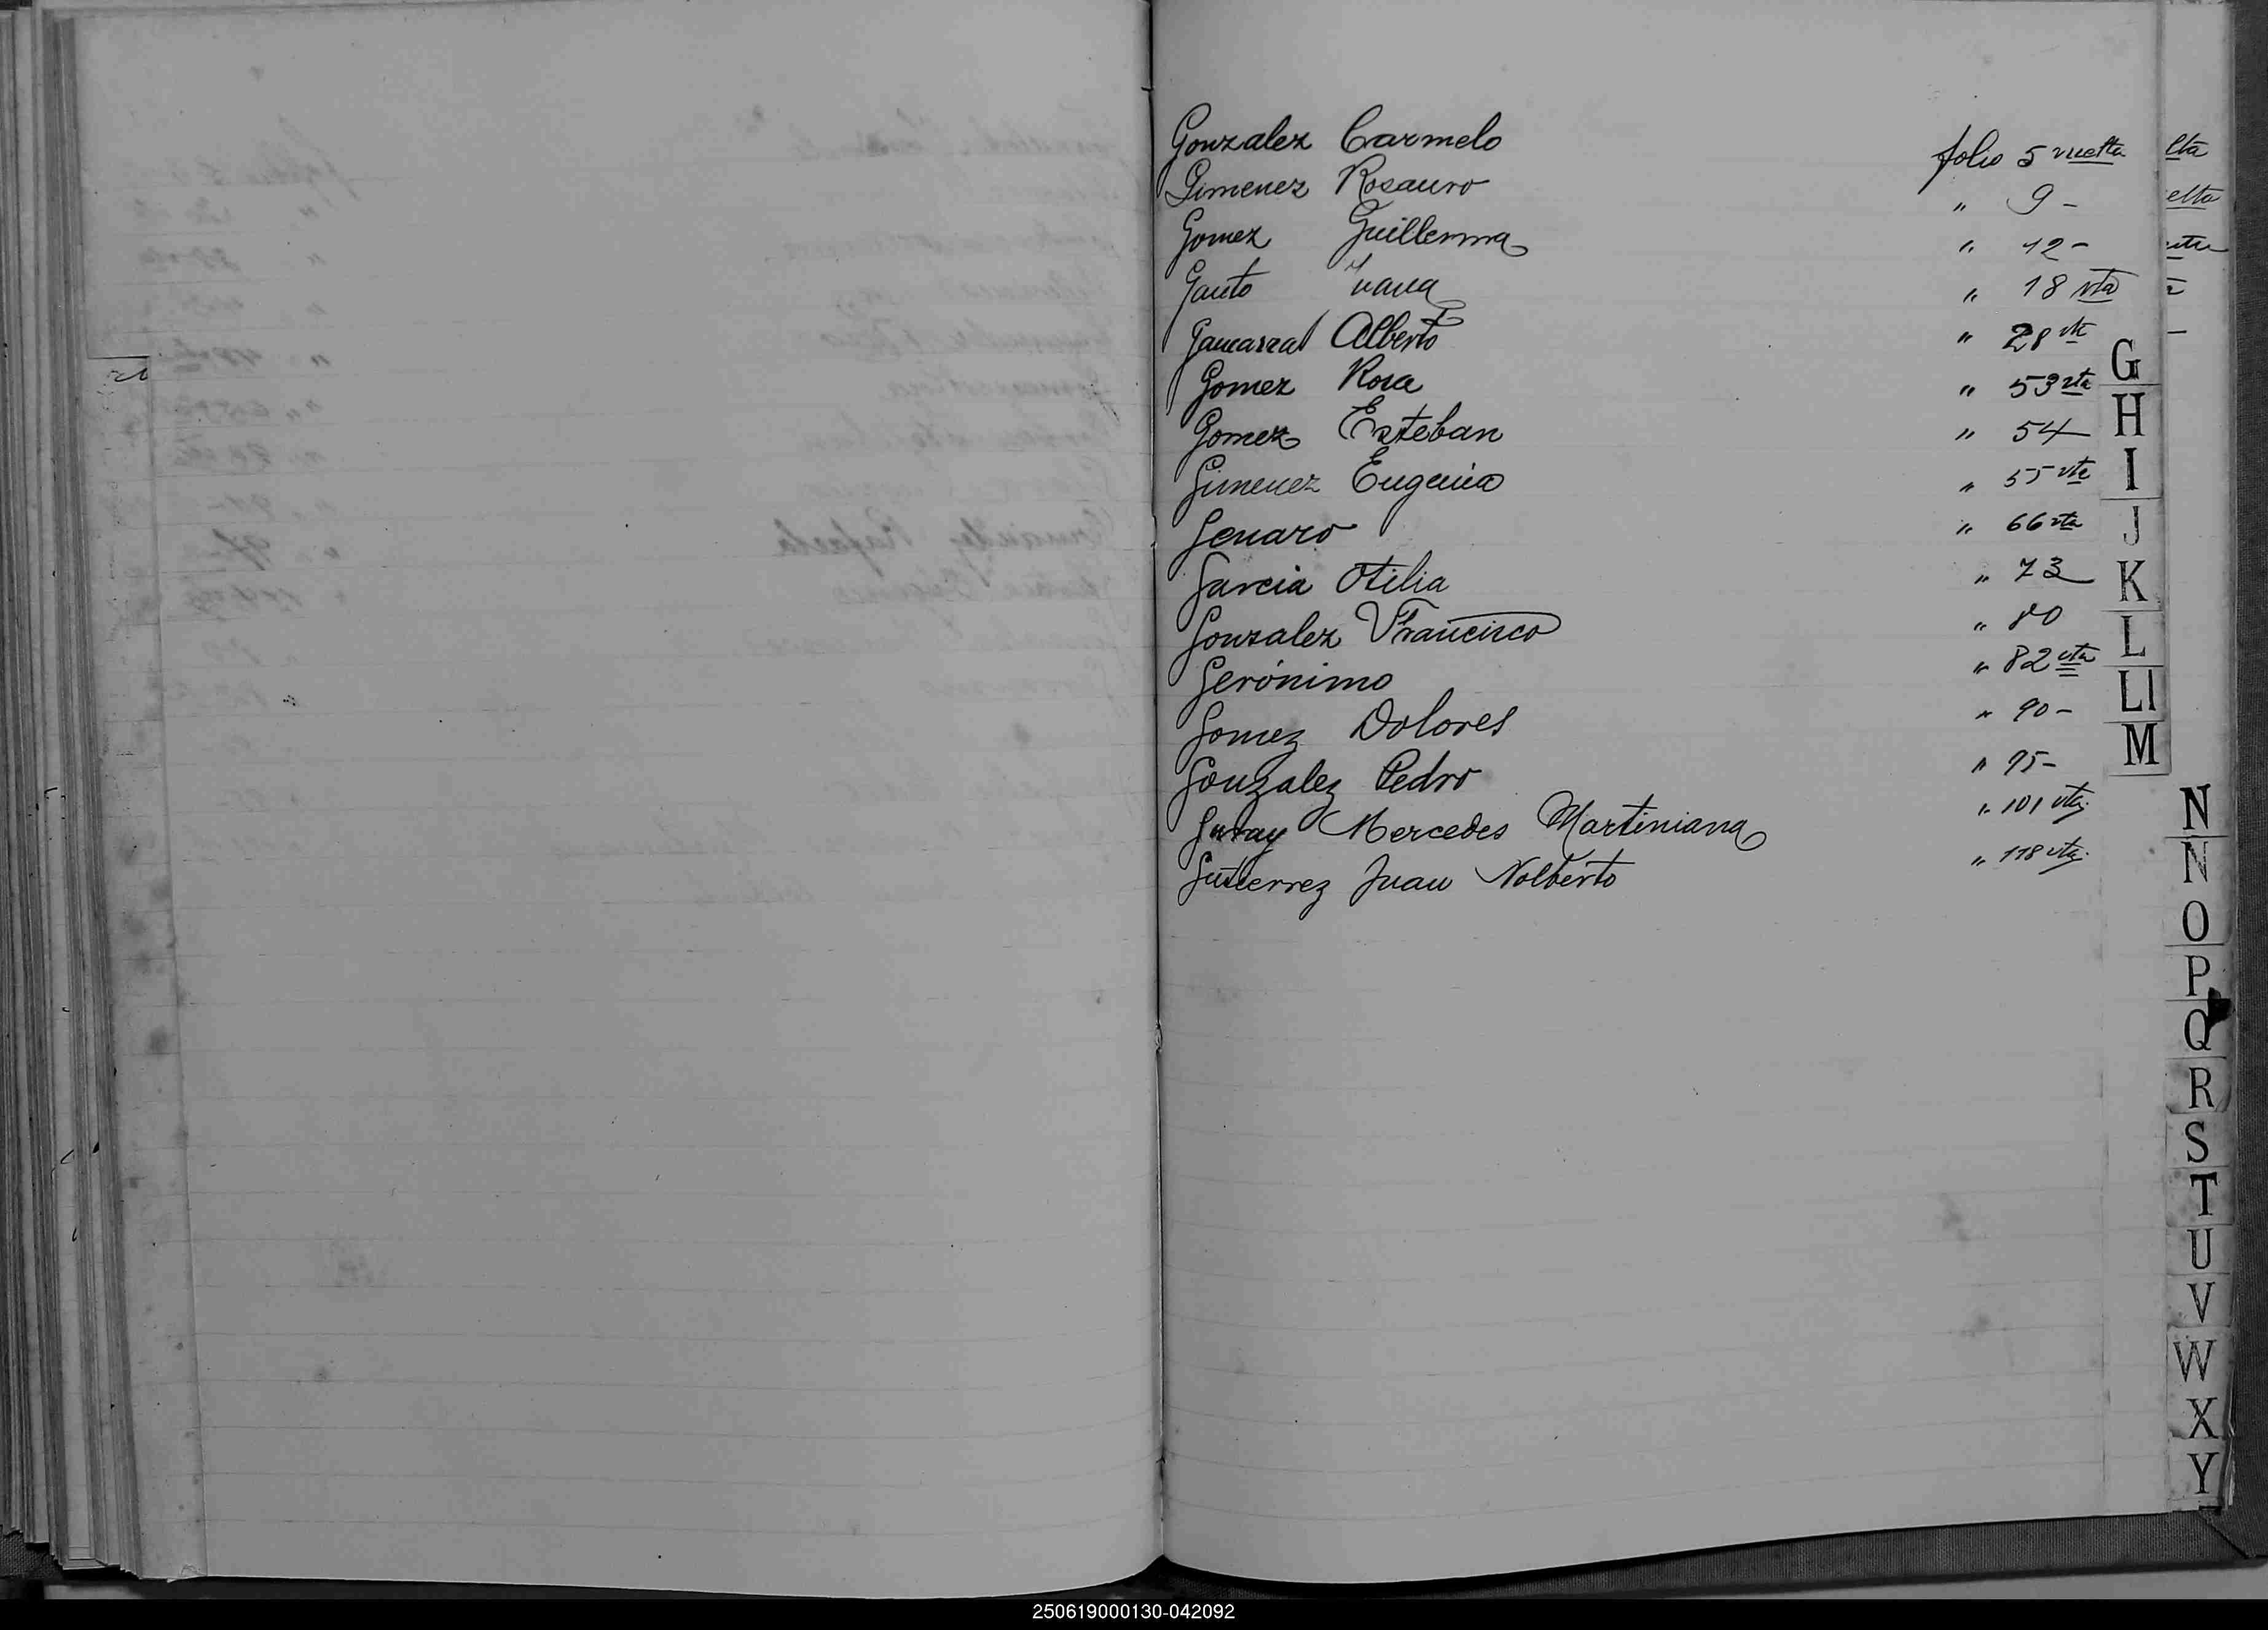 Gonzalez Carmelo folio 5 vuelta
Gimenez Rosauro " 9 -
Gomez Guillerma " 12 -
Gauto Juana " 18 vta
Gamarra Alberto " 28 vta
Gomez Rosa " 53 vta
Gomez Esteban " 54
Gimenez Eugenia " 55 vta
Genaro " 66 vta
Garcia Otilia " 73
Gonzalez Francisco " 80
Gerónimo " 82 vta
Gomez Dolores " 90 -
Gonzalez Pedro " 95 -
Garay Mercedes Martiniana " 101 vta.
Gutierrez Juan Nolberto " 118 vta.
lta
elta
G
H
I
J
K
L
Ll
M
N
Ñ
O
P
Q
R
S
T
U
V
W
X
Y
250619000130-042092